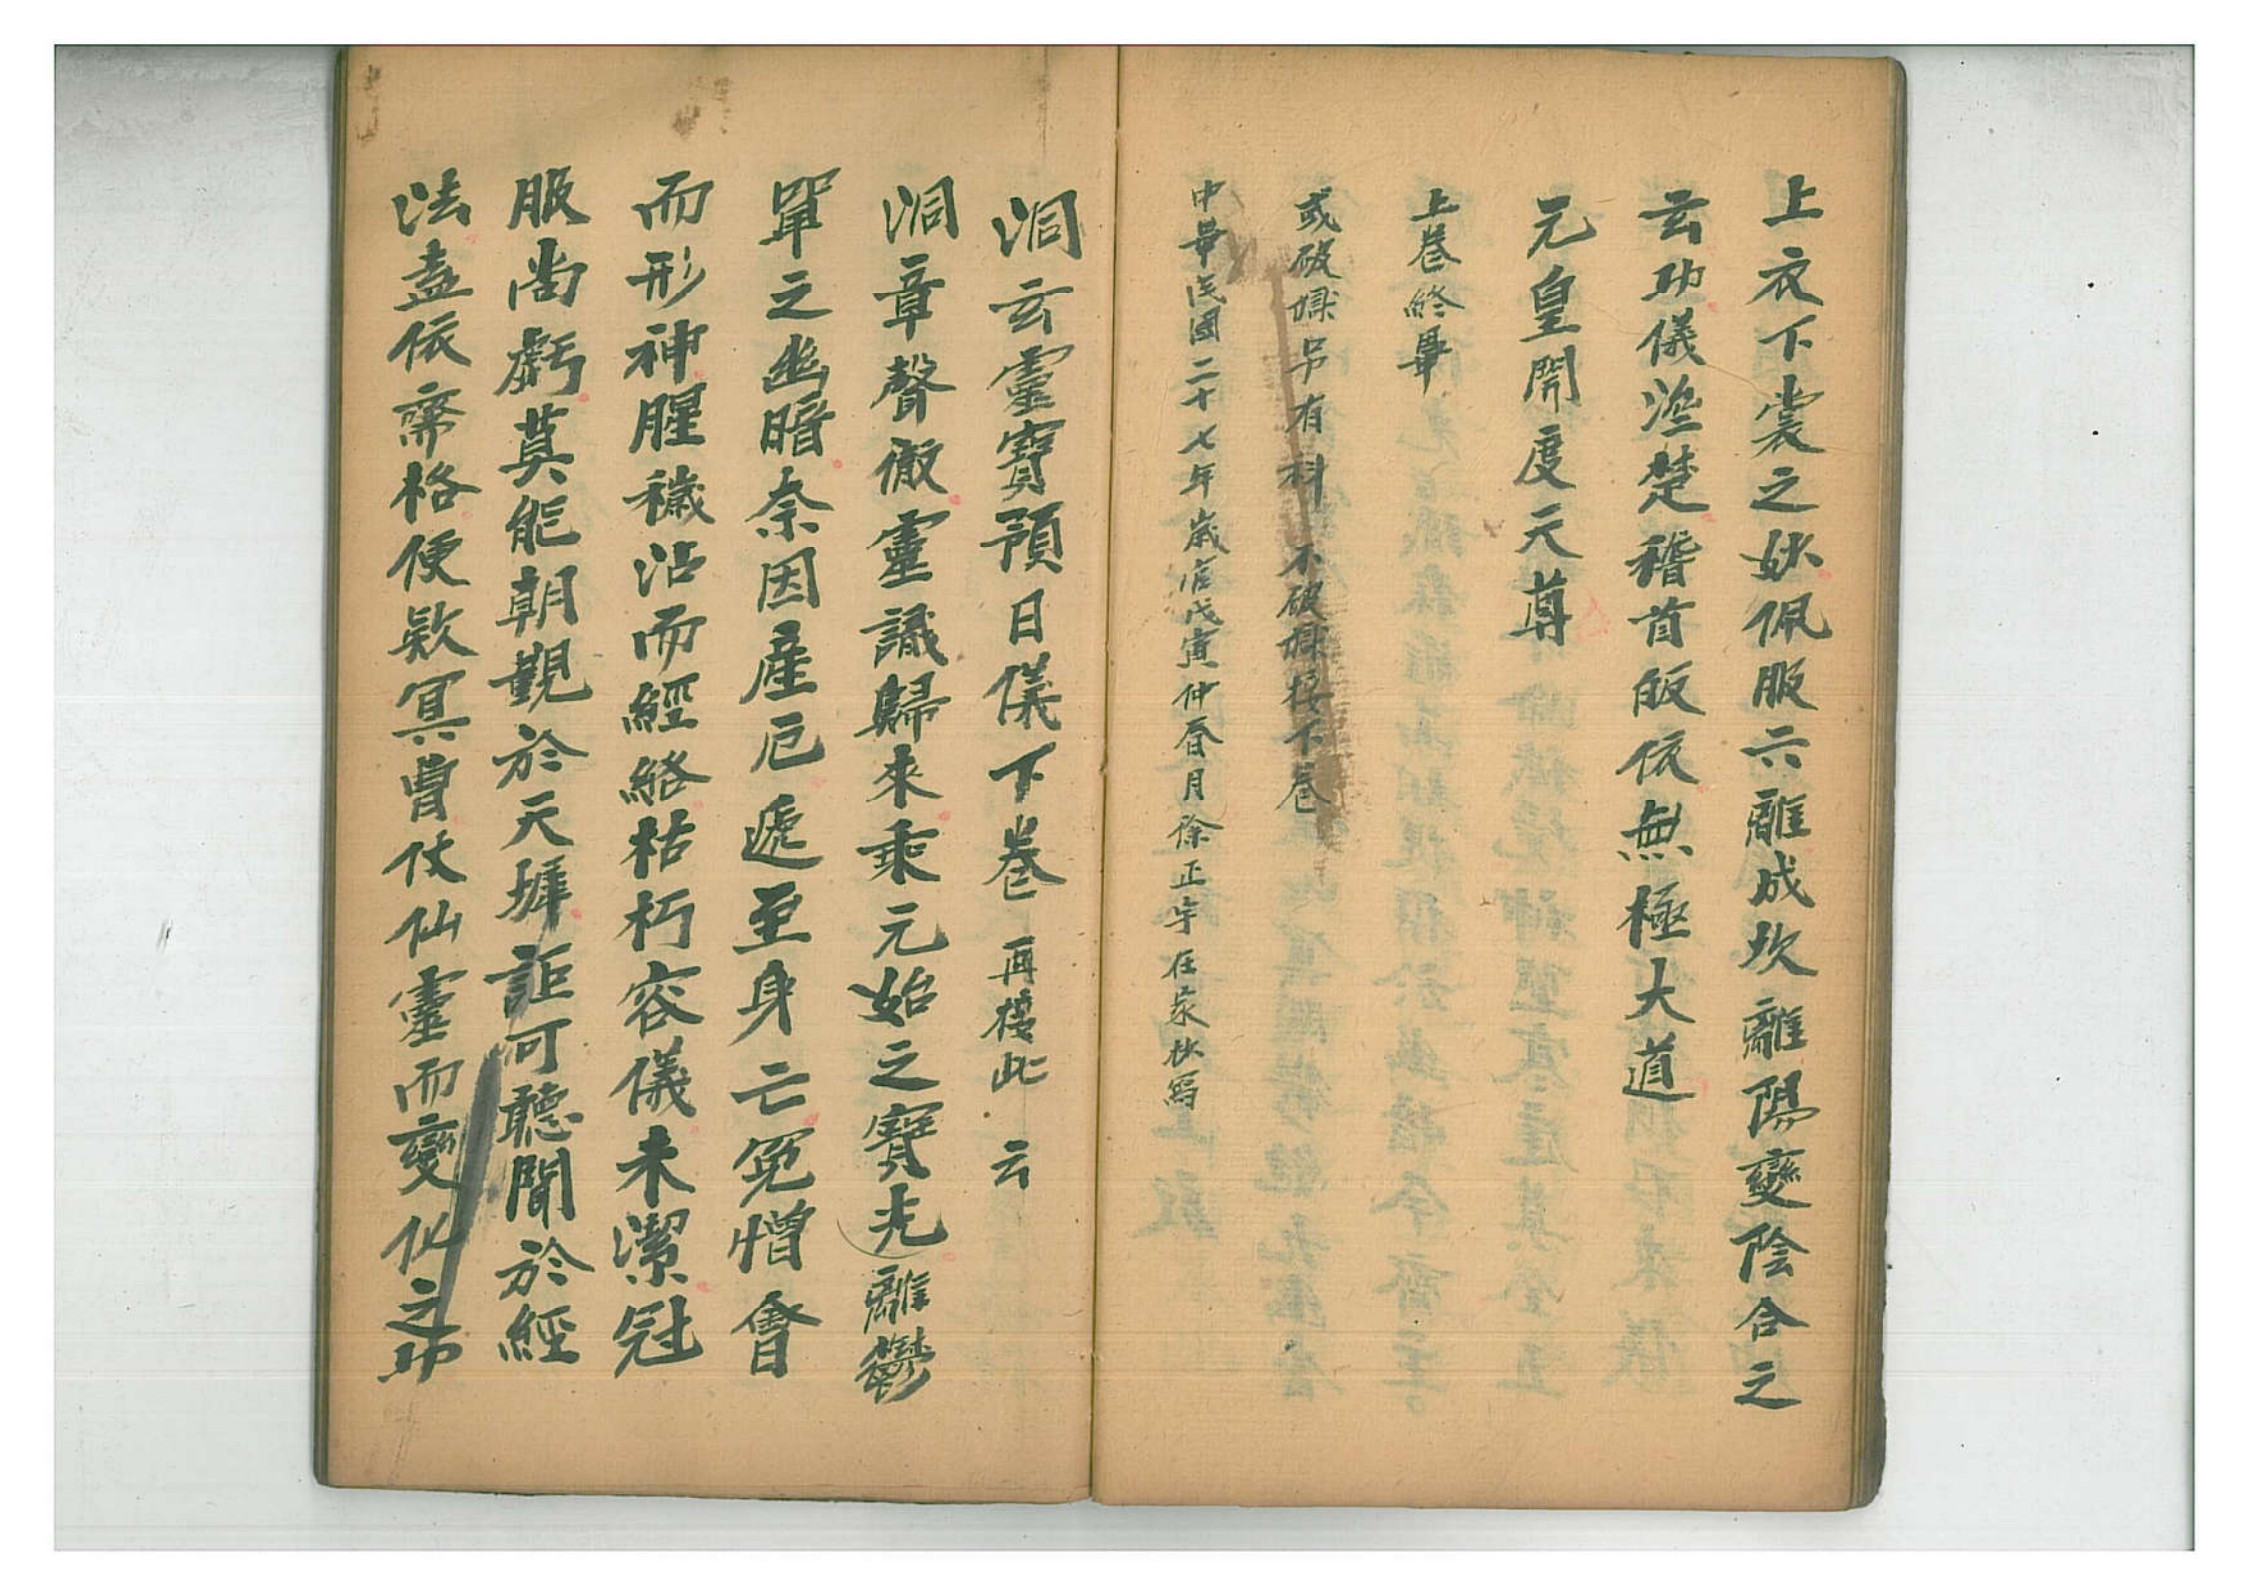 上衣下裳之妙佩服六離成坎離陽變陰合之
云功儀塗楚稽首皈依無極大道
元皇開度天尊
上卷終畢
或破獄另有科 不破獄接下卷
中華民國二十七年歲次戊寅仲春月徐正宇在家抄寫
洞云靈寶預日儀下卷 再接此 云
洞章聲徹靈識歸來乘元始之寶光離鬱
單之幽暗奈因產厄遞至身亡冤憎會
而形神腥穢沾而經絡枯朽容儀未潔冠
服尚虧莫能朝覲於天墀詎可聽聞於經
法盍依齋格便欵冥曹仗仙靈而變化之功